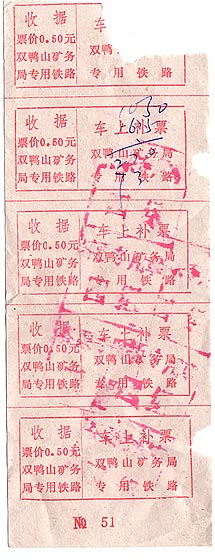 收据
票价0.50元
双鸭山矿务
局专用铁路
车
双鸭
专用铁路
收据
票价0.50元
双鸭山矿务
局专用铁路
车上补票
双鸭山矿务局
专用铁路
收据
票价0.50元
双鸭山矿务
局专用铁路
车上补票
双鸭山矿务局
专用铁路
收据
票价0.50元
双鸭山矿务
局专用铁路
车上补票
双鸭山矿务局
专用铁路
收据
票价0.50元
双鸭山矿务
局专用铁路
车上补票
双鸭山矿务局
专用铁路
№ 51